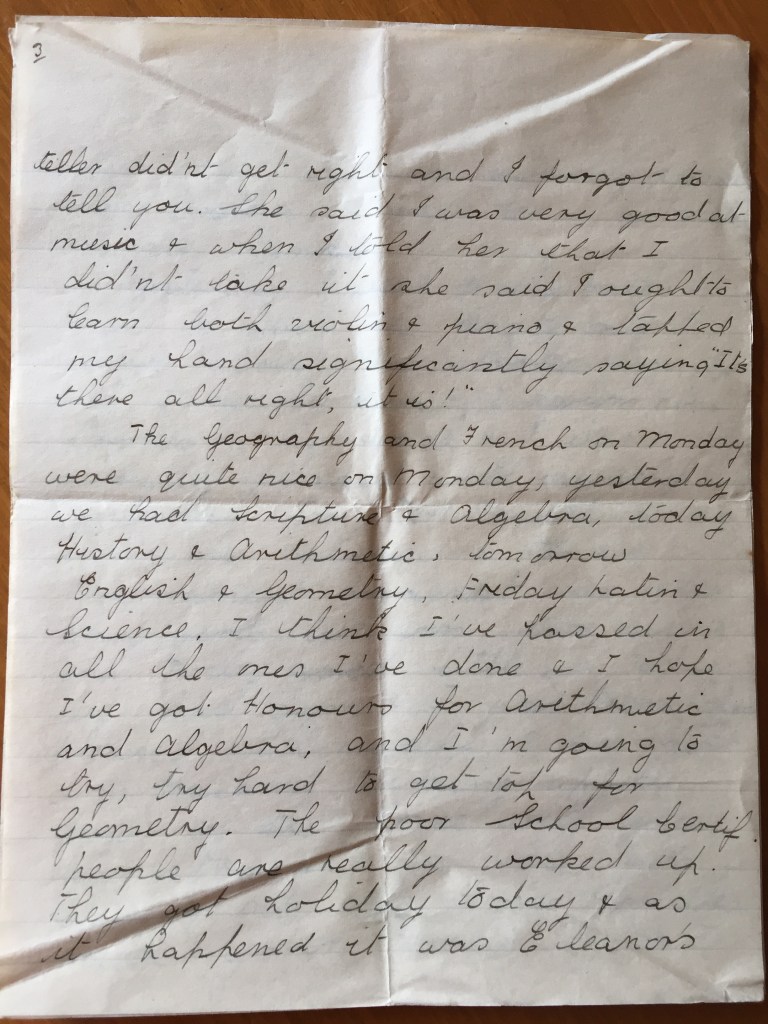 3
teller did'nt get right and I forgot to
tell you. She said I was very good at
music & when I told her that I
did'nt take it she said I ought to
learn both violin & piano & tapped
my hand significantly saying "It's
there all right, it is!"
The Geography and French on Monday
were quite nice on Monday, yesterday
we had Scripture & Algebra, today
History & Arithmetic, tomorrow
English & Geometry, Friday Latin &
Science. I think I've passed in
all the ones I've done & I hope
I've got Honours for Arithmetic
and Algebra, and I'm going to
try, try hard to get top for
Geometry. The poor School Certif.
people are really worked up.
They got holiday today & as
it happened it was Eleanor's